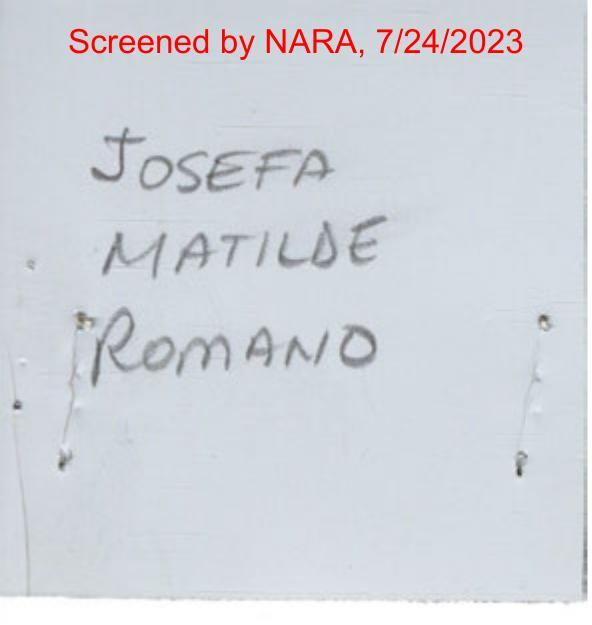 Screened by NARA, 7/24/2023
JOSEFA
MATILDE
ROMANO